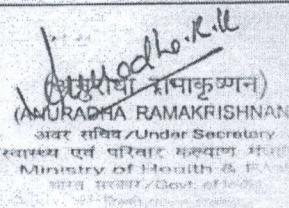 Anuradha.R.K
(अनुराधा रामाकृष्णन)
(ANURADHA RAMAKRISHNAN
अवर सचिव/Under Secretary
स्वास्थ्य एवं परिवार कल्याण
Ministry of Health &
भारत सरकार/Govt. of India